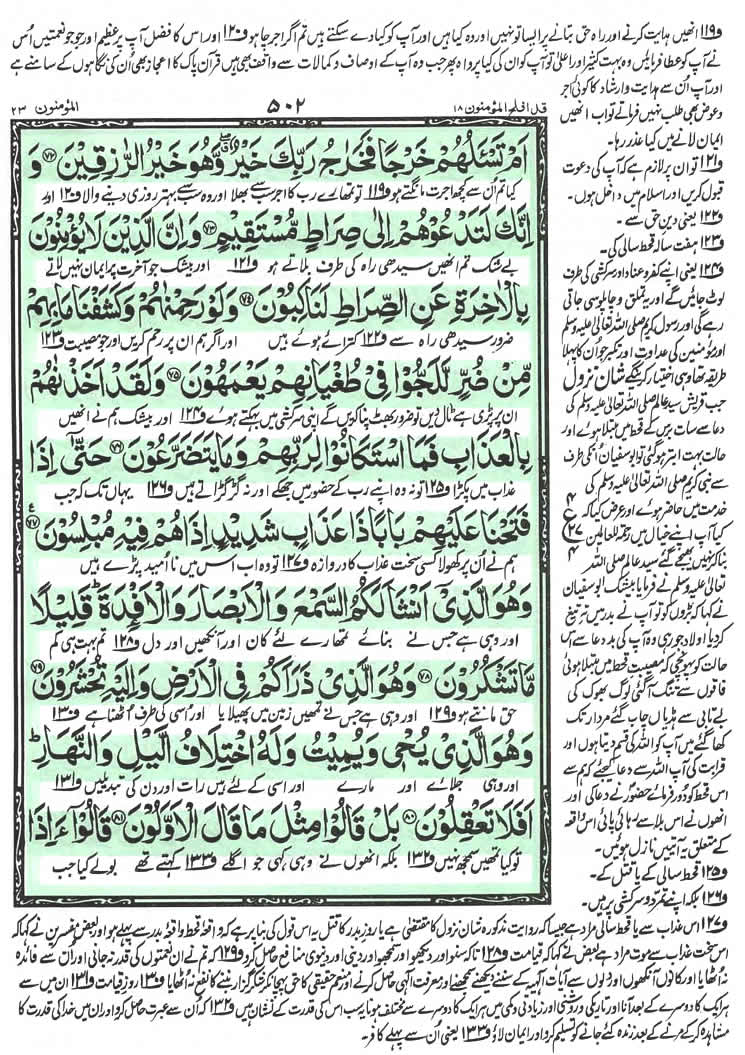 و۱۱۹ انھیں ہدایت کرنے اور راہ حق بتانے پر ایسا تو نہیں اور وہ کیا ہیں اور آپ کو کیا دے سکتے ہیں تم اگر اجر چاہو و۱۲۰ اور اس کا فضل آپ پر عظیم اور جو جو نعمتیں اُس
نے آپ کو عطا فرمائیں وہ بہت کثیر اور اعلیٰ تو آپ کو ان کی کیا پرواہ پھر جب وہ آپ کے اوصاف و کمالات سے واقف بھی ہیں قرآن پاک کا اعجاز بھی اُن کی نگاہوں کے سامنے ہے
اور آپ اُن سے ہدایت و ارشاد کا کوئی اجر
و عوض بھی طلب نہیں فرماتے تو اب انھیں
ایمان لانے میں کیا عذر رہا۔
و۱۲۱ تو ان پر لازم ہے کہ آپ کی دعوت
قبول کریں اور اسلام میں داخل ہوں۔
و۱۲۲ یعنی دین حق سے۔
و۱۲۳ ہفت سالہ قحط سالی کی۔
و۱۲۴ یعنی اپنے کفر و عناد اور سرکشی کی طرف
لوٹ جائیں گے اور یہ تملق و چاپلوسی جاتی
رہے گی اور رسول کریم صلی اللہ تعالیٰ علیہ وسلم
اور مؤمنین کی عداوت اور تکبر جو اُن کا پہلا
طریقہ تھا وہی اختیار کریں گے شان نزول
جب قریش سید عالم صلی اللہ تعالیٰ علیہ وسلم کی
دعا سے سات برس کے قحط میں مبتلا ہوئے اور
حالت بہت ابتر ہوگئی تو ابوسفیان اُنکی طرف
سے نبی کریم صلی اللہ تعالیٰ علیہ وسلم کی
خدمت میں حاضر ہوئے اور عرض کیا کہ
کیا آپ اپنے خیال میں رحمۃ للعالمین
بنا کر نہیں بھیجے گئے سید عالم صلی اللہ
تعالیٰ علیہ وسلم نے فرمایا بیشک ابوسفیان
نے کہا کہ بڑوں کو تو آپ نے بدر میں تہ تیغ
کر دیا اولاد جو رہی وہ آپ کی بددعا سے اس
حالت کو پہونچی کہ مصیبت قحط میں مبتلا ہوئی
فاقوں سے تنگ آگئی لوگ بھوک کی
بے تابی سے ہڈیاں چاب گئے مردار تک
کھا گئے میں آپ کو اللہ کی قسم دیتا ہوں اور
قرابت کی آپ اللہ سے دعا کیجئے کہ ہم سے
اس قحط کو دور فرمائے حضور نے دعا کی اور
انھوں نے اس بلا سے رہائی پائی اس واقعہ
کے متعلق یہ آیتیں نازل ہوئیں۔
و۱۲۵ قحط سالی کے یا قتل کے۔
و۱۲۶ بلکہ اپنے تمرد و سرکشی پر ہیں۔
قد افلح ۱۸ المؤمنون
۵۰۲
المؤمنون ۲۳
اَمْ تَسْـَٔلُهُمْ خَرْجًا فَخَرَاجُ رَبِّكَ خَيْرٌ وَّهُوَ خَيْرُ الرّٰزِقِيْنَ ۷۲ وَ
کیا تم اُن سے کچھ اجرت مانگتے ہو و۱۱۹ تو تمھارے رب کا اجر سب سے بھلا اور وہ سب سے بہتر روزی دینے والا و۱۲۰ اور
اِنَّكَ لَتَدْعُوْهُمْ اِلٰى صِرَاطٍ مُّسْتَقِيْمٍ ۷۳ وَاِنَّ الَّذِيْنَ لَا يُؤْمِنُوْنَ
بے شک تم انھیں سیدھی راہ کی طرف بلاتے ہو و۱۲۱ اور بیشک جو آخرت پر ایمان نہیں لاتے
بِالْاٰخِرَةِ عَنِ الصِّرَاطِ لَنٰكِبُوْنَ ۷۴ وَلَوْ رَحِمْنٰهُمْ وَكَشَفْنَا مَا بِهِمْ
ضرور سیدھی راہ سے و۱۲۲ کترائے ہوئے ہیں اور اگر ہم ان پر رحم کریں اور جو مصیبت و۱۲۳
مِّنْ ضُرٍّ لَّلَجُّوْا فِيْ طُغْيَانِهِمْ يَعْمَهُوْنَ ۷۵ وَلَقَدْ اَخَذْنٰهُمْ
ان پر پڑی ہے ٹال دیں تو ضرور بھٹ پنا کریں گے اپنی سرکشی میں بہکتے ہوئے و۱۲۴ اور بیشک ہم نے انھیں
بِالْعَذَابِ فَمَا اسْتَكَانُوْا لِرَبِّهِمْ وَمَا يَتَضَرَّعُوْنَ ۷۶ حَتّٰٓى اِذَا
عذاب میں پکڑا و۱۲۵ تو نہ وہ اپنے رب کے حضور میں جھکے اور نہ گڑگڑاتے ہیں و۱۲۶ یہاں تک کہ جب
فَتَحْنَا عَلَيْهِمْ بَابًا ذَا عَذَابٍ شَدِيْدٍ اِذَا هُمْ فِيْهِ مُبْلِسُوْنَ ۷۷
ہم نے اُن پر کھولا کسی سخت عذاب کا دروازہ و۱۲۷ تو وہ اب اس میں نا اُمید پڑے ہیں
وَهُوَ الَّذِيْٓ اَنْشَاَ لَكُمُ السَّمْعَ وَالْاَبْصَارَ وَالْاَفْـِٕدَةَ ؕ قَلِيْلًا
اور وہی ہے جس نے بنائے تمھارے لئے کان اور آنکھیں اور دل و۱۲۸ تم بہت ہی کم
مَّا تَشْكُرُوْنَ ۷۸ وَهُوَ الَّذِيْ ذَرَاَكُمْ فِي الْاَرْضِ وَاِلَيْهِ تُحْشَرُوْنَ ۷۹
حق مانتے ہو و۱۲۹ اور وہی ہے جس نے تمھیں زمین میں پھیلایا اور اُسی کی طرف اُٹھنا ہے و۱۳۰
وَهُوَ الَّذِيْ يُحْيٖ وَيُمِيْتُ وَلَهُ اخْتِلَافُ الَّيْلِ وَالنَّهَارِ ؕ
اور وہی جلائے اور مارے اور اسی کے لئے ہیں رات اور دن کی تبدیلیں و۱۳۱
اَفَلَا تَعْقِلُوْنَ ۸۰ بَلْ قَالُوْا مِثْلَ مَا قَالَ الْاَوَّلُوْنَ ۸۱ قَالُوْٓا ءَاِذَا
تو کیا تمھیں سمجھ نہیں و۱۳۲ بلکہ انھوں نے وہی کہی جو اگلے و۱۳۳ کہتے تھے بولے کیا جب
ع
۴
۲۷
۴
و۱۲۷ اس عذاب سے یا قحط سالی مراد ہے جیسا کہ روایت مذکورہ شان نزول کا مقتضی ہے یا روز بدر کا قتل یہ اس قول کی بنا پر ہے کہ واقعہ قحط واقعہ بدر سے پہلے ہو اور بعض مفسرین نے کہا کہ
اس سخت عذاب سے موت مراد ہے بعض نے کہا کہ قیامت و۱۲۸ تاکہ سنو اور دیکھو اور سمجھو اور دینی اور دنیوی منافع حاصل کرو و۱۲۹ کہ تم نے ان نعمتوں کی قدر نہ جانی اور اُن سے فائدہ
نہ اُٹھایا اور کانوں آنکھوں اور دلوں سے آیات الٰہیہ کے سننے دیکھنے سمجھنے اور معرفت الٰہی حاصل کرنے اور منعم حقیقی کا حق پہچان کر شکر گزار بننے کا نفع نہ اُٹھایا و۱۳۰ روز قیامت و۱۳۱ ان میں سے
ہر ایک کا دوسرے کے بعد آنا اور تاریکی و روشنی اور زیادتی و کمی میں ہر ایک کا دوسرے سے مختلف ہونا یہ سب اس کی قدرت کے نشان ہیں و۱۳۲ کہ اُن سے عبرت حاصل کرو اور ان میں خدا کی قدرت کا
مشاہدہ کر کے مرنے کے بعد زندہ کئے جانے کو تسلیم کرو اور ایمان لاؤ و۱۳۳ یعنی اُن سے پہلے کافر۔